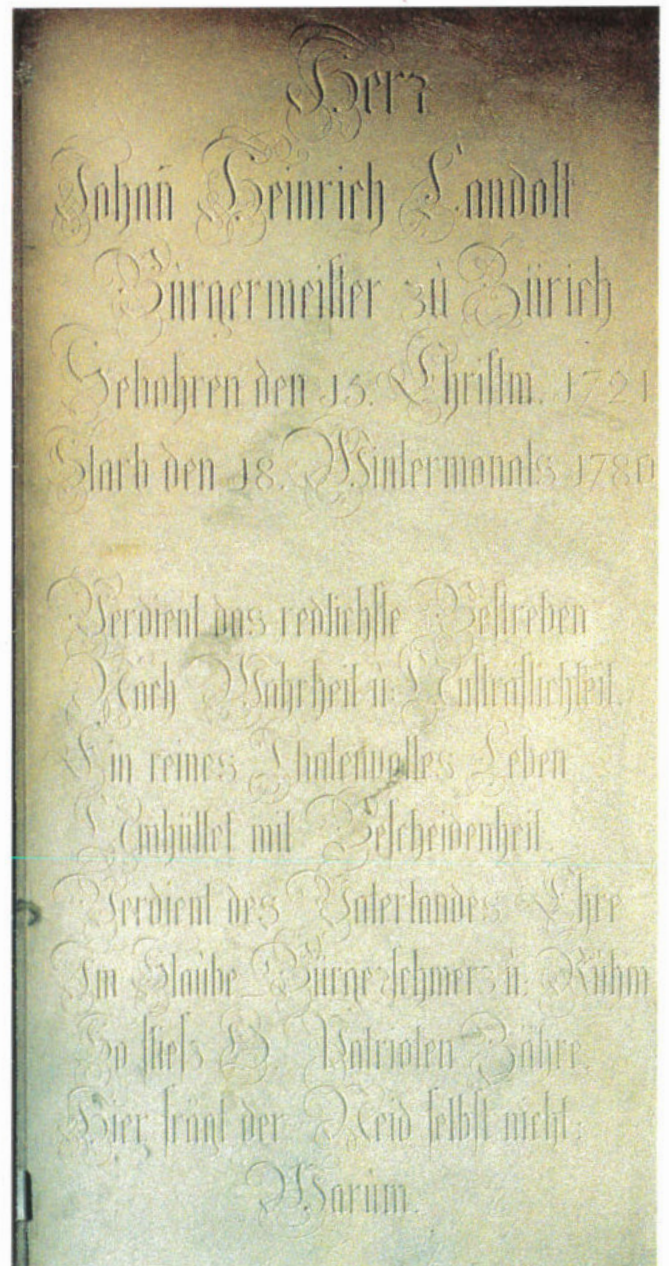 Herr
Johañ Heinrich Landolt
Bürgermeister zù Zürich
Gebohren den 15. Christm. 1721
Starb den 18. Wintermonats 1780
Verdient das redlichste Bestreben
Nach Wahrheit ù: Unsträflichkeit.
Ein reines Thatenvolles Leben
Umhüllet mit Bescheidenheit.
Verdient des Vaterlandes Ehre
Im Staùbe Bürgerschmerz ù: Rùhm
So fliess O. Patrioten Zähre.
Hier frägt der Neid selbst nicht:
Warùm.